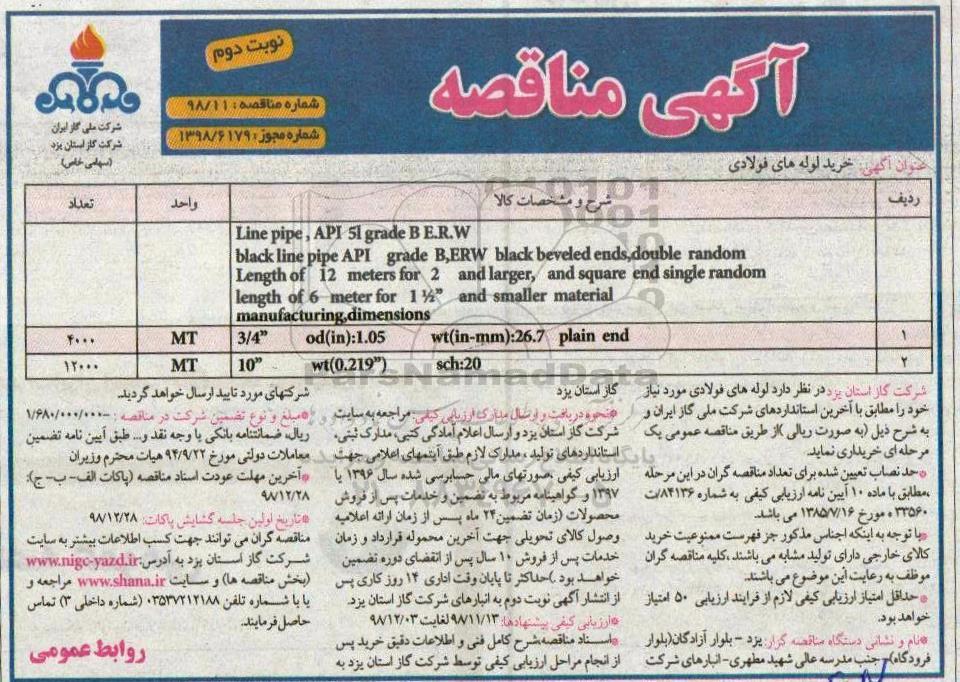 آگهی مناقصه
نوبت دوم
شماره مناقصه : ۹۸/۱۱
شماره مجوز : ۱۳۹۸/۶۱۷۹
شرکت ملی گاز ایران
شرکت گاز استان یزد
(سهامی خاص)
عنوان آگهی: خرید لوله های فولادی
ردیف شرح و مشخصات کالا واحد تعداد
Line pipe , API 5l grade B E.R.W
black line pipe API grade B,ERW black beveled ends,double random
Length of 12 meters for 2 and larger, and square end single random
length of 6 meter for 1 ½” and smaller material
manufacturing,dimensions
۱ 3/4” od(in):1.05 wt(in-mm):26.7 plain end MT ۴۰۰۰
۲ 10” wt(0.219”) sch:20 MT ۱۲۰۰۰
ParsNamadData
شرکت گاز استان یزد در نظر دارد لوله های فولادی مورد نیاز
خود را مطابق با آخرین استانداردهای شرکت ملی گاز ایران و
به شرح ذیل (به صورت ریالی )از طریق مناقصه عمومی یک
مرحله ای خریداری نماید.
*حد نصاب تعیین شده برای تعداد مناقصه گران در این مرحله
،مطابق با ماده ۱۰ آیین نامه ارزیابی کیفی به شماره ۸۴۱۳۶/ت
۳۳۵۶۰ ه مورخ ۱۳۸۵/۷/۱۶ می باشد.
*با توجه به اینکه اجناس مذکور جز فهرست ممنوعیت خرید
کالای خارجی دارای تولید مشابه می باشند ،کلیه مناقصه گران
موظف به رعایت این موضوع می باشند.
*حداقل امتیاز ارزیابی کیفی لازم از فرایند ارزیابی ۵۰ امتیاز
خواهد بود.
*نام و نشانی دستگاه مناقصه گزار: یزد - بلوار آزادگان(بلوار
فرودگاه)- جنب مدرسه عالی شهید مطهری- انبارهای شرکت
گاز استان یزد
*نحوه دریافت و ارسال مدارک ارزیابی کیفی: مراجعه به سایت
شرکت گاز استان یزد و ارسال اعلام آمادگی کتبی، مدارک ثبتی،
استانداردهای تولید ، مدارک لازم طبق آیتمهای اعلامی جهت
ارزیابی کیفی ،صورتهای مالی حسابرسی شده سال ۱۳۹۶ یا
۱۳۹۷ و گواهینامه مربوط به تضمین و خدمات پس از فروش
محصولات (زمان تضمین۲۴ ماه پس از زمان ارائه اعلامیه
وصول کالای تحویلی جهت آخرین محموله قرارداد و زمان
خدمات پس از فروش ۱۰ سال پس از انقضای دوره تضمین
خواهد بود .)حداکثر تا پایان وقت اداری ۱۴ روز کاری پس
از انتشار آگهی نوبت دوم به انبارهای شرکت گاز استان یزد.
*ارزیابی کیفی پیشنهادها: ۹۸/۱۱/۱۳ لغایت ۹۸/۱۲/۰۳
*اسناد مناقصه:شرح کامل فنی و اطلاعات دقیق خرید پس
از انجام مراحل ارزیابی کیفی توسط شرکت گاز استان یزد به
شرکتهای مورد تایید ارسال خواهد گردید.
*مبلغ و نوع تضمین شرکت در مناقصه : -۱/۶۸۰/۰۰۰/۰۰۰
ریال، ضمانتنامه بانکی یا وجه نقد و... طبق آیین نامه تضمین
معاملات دولتی مورخ ۹۴/۹/۲۲ هیات محترم وزیران
*آخرین مهلت عودت اسناد مناقصه (پاکات الف- ب- ج):
۹۸/۱۲/۲۸
*تاریخ اولین جلسه گشایش پاکات: ۹۸/۱۲/۲۸
مناقصه گران می توانند جهت کسب اطلاعات بیشتر به سایت
شرکت گاز استان یزد به آدرس:www.nigc-yazd.ir
(بخش مناقصه ها) و سایت www.shana.ir مراجعه و
یا با شماره تلفن ۰۳۵۳۷۲۱۲۱۸۸ (شماره داخلی ۳) تماس
حاصل فرمایند.
روابط عمومی